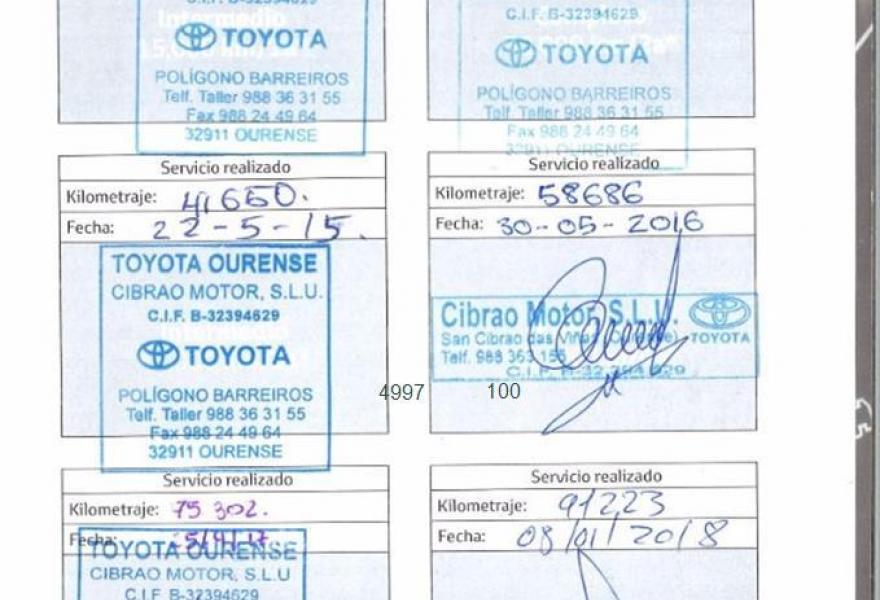 C.I.F. B-32394629
TOYOTA
POLÍGONO BARREIROS
Telf. Taller 988 36 31 55
Fax 988 24 49 64
32911 OURENSE
C.I.F. B-32394629
TOYOTA
POLÍGONO BARREIROS
Telf. Taller 988 36 31 55
Fax 988 24 49 64
32911 OURENSE
Servicio realizado
Kilometraje: 41650.
Fecha: 22-5-15.
TOYOTA OURENSE
CIBRAO MOTOR, S.L.U.
C.I.F. B-32394629
TOYOTA
POLÍGONO BARREIROS
Telf. Taller 988 36 31 55
Fax 988 24 49 64
32911 OURENSE
Servicio realizado
Kilometraje: 58686
Fecha: 30-05-2016
Cibrao Motor, S.L.U.
San Cibrao das Viñas
TOYOTA
Telf. 988 363 155
4997 100
Servicio realizado
Kilometraje: 75302.
Fecha:
TOYOTA OURENSE
CIBRAO MOTOR, S.L.U
C.I.F. B-32394629
Servicio realizado
Kilometraje: 91223
Fecha: 08/01/2018